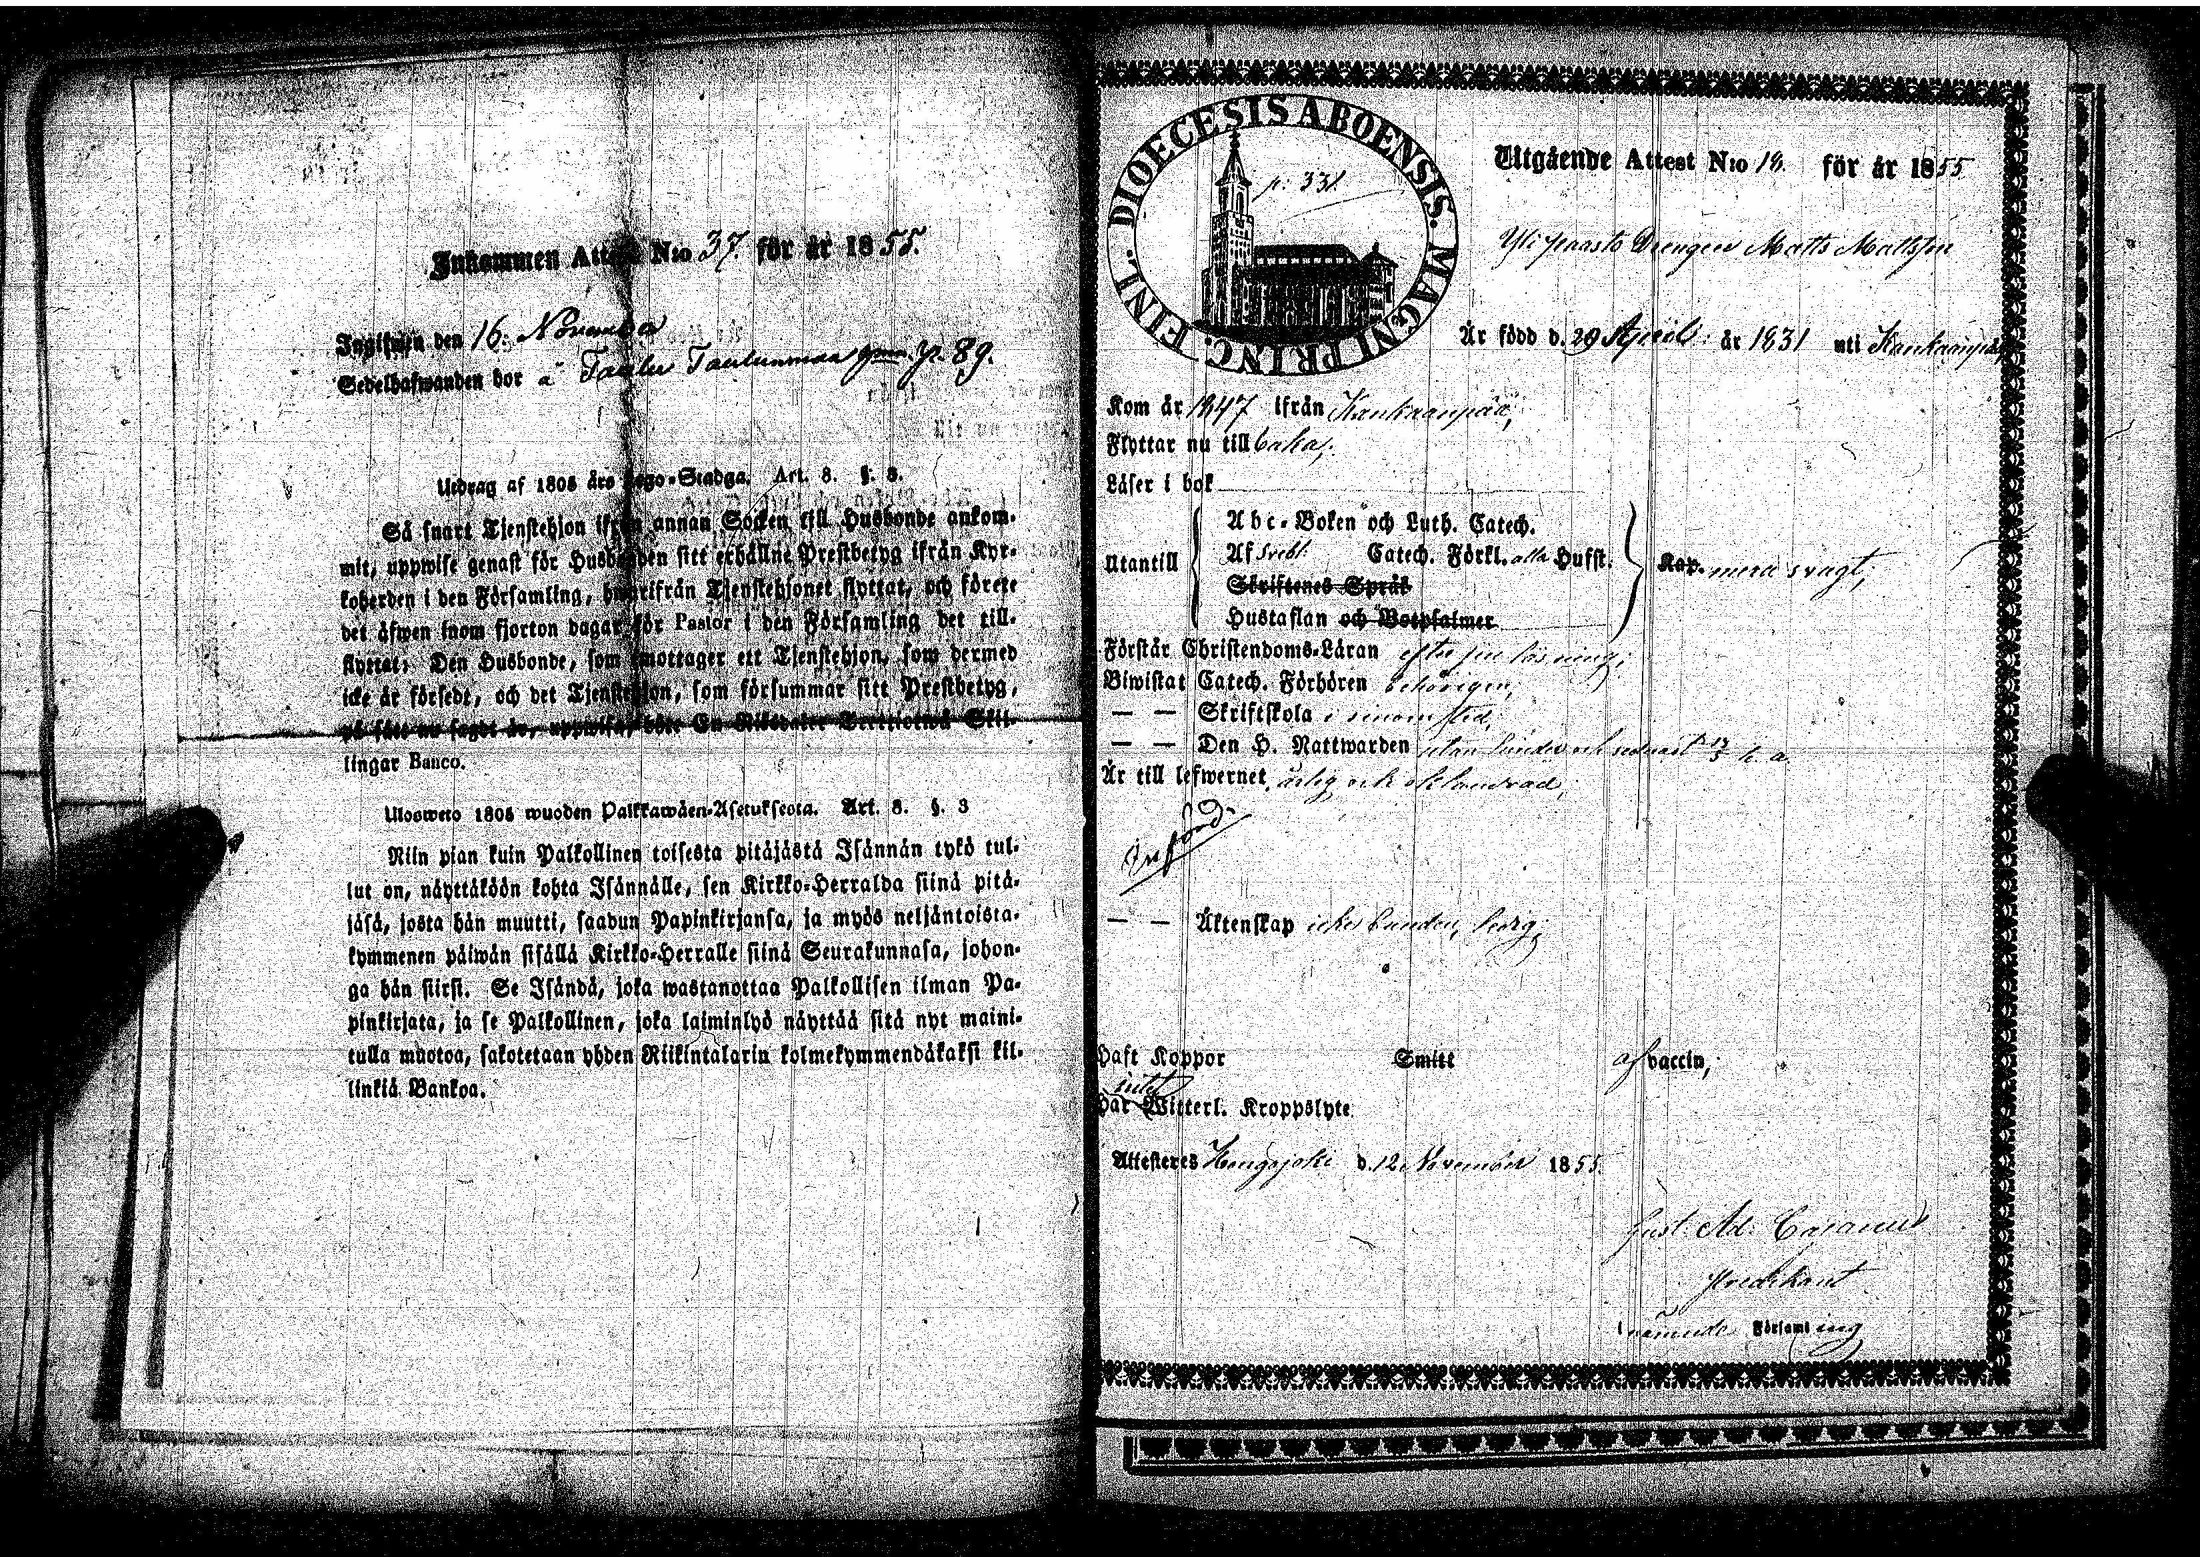 Inkommen Attest N:o 37. för år 1855.
Ingifwen den 16. November
Sedelhafwanden bor å Taulu Taulunmaa p. 89.
Utdrag af 1805 års Lego-Stadga. Art. 8. §. 3.
Så snart Tjenstehjon ifrån annan Socken till Husbonde ankom-
mit, uppwise genast för Husbonden sitt erhållne Prestbetyg ifrån Kyr-
koherden i den Församling, hwarifrån Tjenstehjonet flyttat, och förete
det äfwen inom fjorton dagar för Pastor i den Församling det till-
flyttat. Den Husbonde, som emottager ett Tjenstehjon, som dermed
icke är försedt, och det Tjenstehjon, som försummar sitt Prestbetyg,
på sätt nu sagdt är, uppwisa, böte En Riksdaler Trettiotwå Skil-
lingar Banco.
Ulosweto 1805 wuoden Palkkawäen-Asetuksesta. Art. 8. §. 3
Niin pian kuin Palkollinen toisesta pitäjästä Isännän tykö tul-
lut on, näyttäköön kohta Isännälle, sen Kirkko-Herralda siinä pitä-
jäsä, josta hän muutti, saadun Papinkirjansa, ja myös neljäntoista-
kymmenen päiwän sisällä Kirkko-Herralle siinä Seurakunnasa, johon-
ga hän siirsi. Se Isändä, joka wastanottaa Palkollisen ilman Pa-
pinkirjata, ja se Palkollinen, joka laiminlyö näyttää sitä nyt maini-
tulla muotoa, sakotetaan yhden Riikintalarin kolmekymmendäkaksi kil-
linkiä Bankoa.
DIOECESIS ABOENSIS. MAGNI PRINC. FINL.
p. 331
Utgående Attest N:o 18. för år 1855
Drengen Matts Mattsson
Är född d. 29 April år 1831 uti Kankaanpää
Kom år 1847 ifrån Kankaanpää,
Flyttar nu tillbaka,
Läser i bok
Utantill
Abc-Boken och Luth. Catech.
Af Svebl. Catech. Förkl. alla Hufst.
Skriftenes Språk
Hustaflan och Botpsalmer
Kap. mera svagt,
Förstår Christendoms-Läran efter sin läsning;
Biwistat Catech. Förhören behörigen,
— — Skriftskola i sinom tid,
— — Den H. Nattwarden utan hinder och sednast h. a.
Är till lefwernet ärlig och oklandrad,
Införd
— — Äktenskap icke bunden, ledig,
Haft Koppor Smitt af vaccin,
intet
Har Witterl. Kroppslyte
Attesteres Hongojoki d. 12 November 1855
Gust. Ad. Cajanus
Predikant
i nämnde Församling